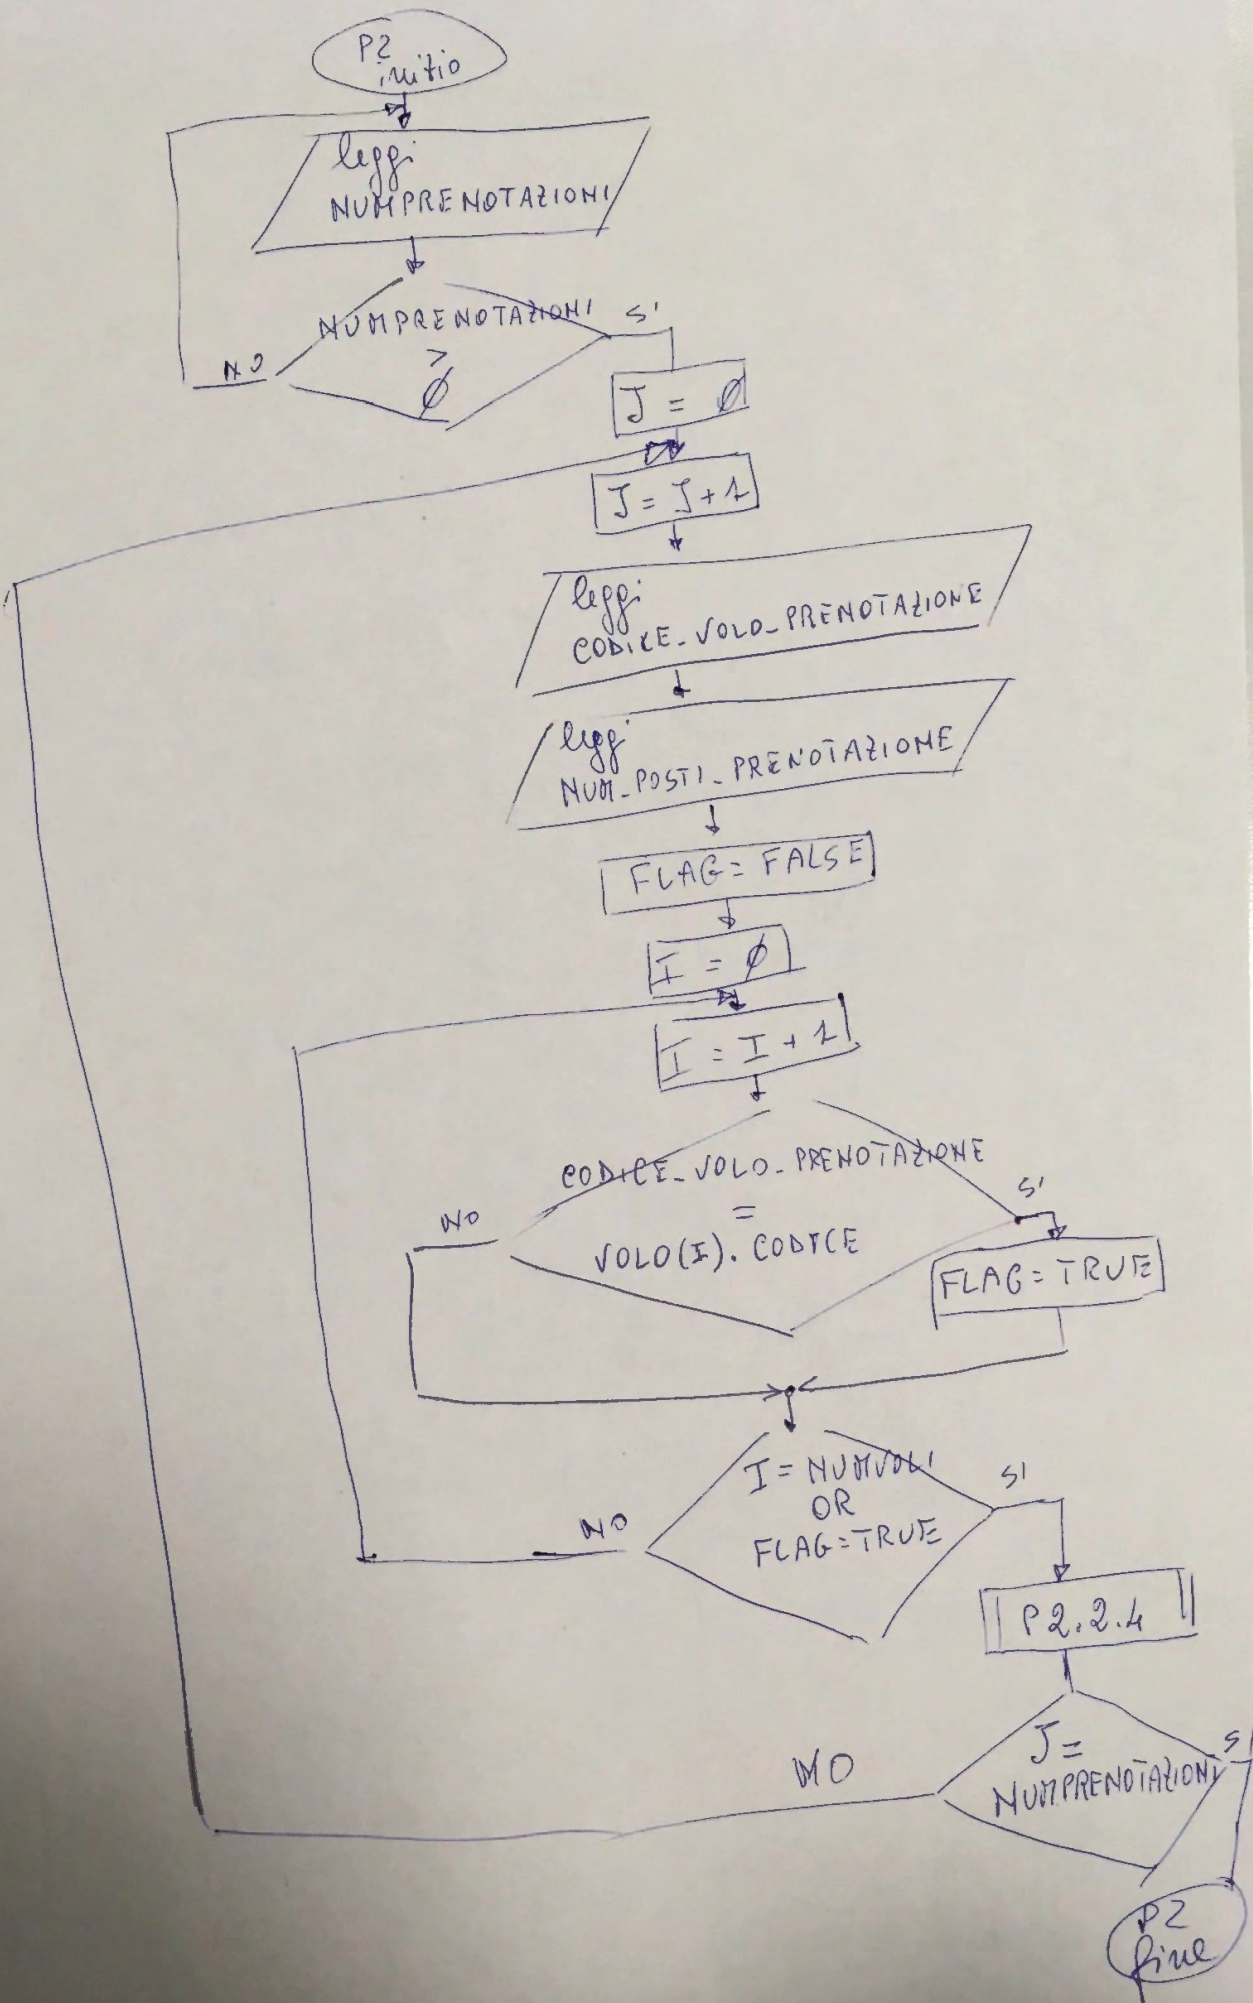 P2
inizio
leggi
NUMPRENOTAZIONI
NUMPRENOTAZIONI
>
Ø
SI
NO
J = Ø
J = J + 1
leggi
CODICE_VOLO_PRENOTAZIONE
leggi
NUM_POSTI_PRENOTAZIONE
FLAG = FALSE
I = Ø
I = I + 1
CODICE_VOLO_PRENOTAZIONE
=
VOLO(I).CODICE
NO
SI
FLAG = TRUE
I = NUMVOLI
OR
FLAG = TRUE
NO
SI
P2.2.4
J =
NUMPRENOTAZIONI
NO
S
P2
fine